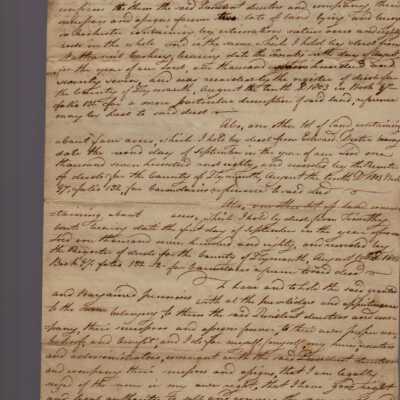 confirm to them the said President directors and company, their
successors and assigns forever two lots of land lying and being
in Rochester containing by estimation
rods in the whole and is the same which I held by deed from
Nathaniel Cushing bearing date the twentieth day of August
in the year of our Lord one thousand seven hundred and
seventy seven, and was recorded by the register of deeds for
the County of Plymouth, August the tenth AD 1803 in Book 97
folio 135 for a more particular description of said land, reference
may be had to said deed
Also, one other lot of land containing
about four acres, which I held by deed from Edward bearing
date the second day of September in the year of our Lord one
thousand seven hundred and eighty, and recorded by the Register
of deeds for the County of Plymouth, August the tenth AD 1803 Book
97 folio 132, for boundaries reference to said deed
Also, one other lot of land con-
taining about acres, which I hold by deed from Timothy
bearing date the first day of September in the year of our
Lord one thousand seven hundred and eighty, and recorded by
the Register of deeds for the County of Plymouth, August 10th AD 1803
Book 97 folio 132 for boundaries reference to said deed
To have and to hold the said granted
and bargained premises with all the priviledges and appurtenances
to the same belonging to them the said President directors and com-
pany, their successors and assigns forever, to their own proper use
behoof and benefit, and I do for myself, my heirs executors
and administrators, covenant with the said President directors
and company their successors and assigns, that I am legally
seized of the same in my own right, that I have good right
and legal authority to sell and convey the same